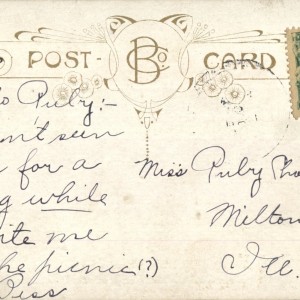 POST CARD
B Co.
lo Ruby:-
n't seen
for a
g while
ite me
he picnic(?)
Miss Ruby
Milton
Ill.